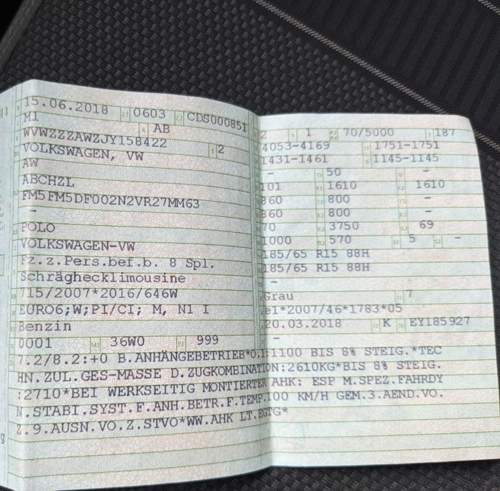 15.06.2018 0603 CDS000851
M1 AB
WVWZZZAWZJY158422 2
VOLKSWAGEN, VW
AW
ABCHZL
FM5FM5DF002N2VR27MM63
-
POLO
VOLKSWAGEN-VW
Fz.z.Pers.bef.b. 8 Spl.
Schräghecklimousine
715/2007*2016/646W
EURO6;W;PI/CI; M, N1 I
Benzin
0001 36W0 999
2 1 70/5000 187
4053-4169 1751-1751
1431-1461 1145-1145
- 50 -
101 1610 1610
860 800 -
860 800 -
70 3750 69
1000 570 5 -
185/65 R15 88H
185/65 R15 88H
-
Grau 7
e1*2007/46*1783*05
20.03.2018 K EY185927
7.2/8.2:+0 B.ANHÄNGEBETRIEB*O.1:1100 BIS 8% STEIG.*TEC
HN.ZUL.GES-MASSE D.ZUGKOMBINATION:2610KG*BIS 8% STEIG.
:2710*BEI WERKSEITIG MONTIERTER AHK: ESP M.SPEZ.FAHRDY
N.STABI.SYST.F.ANH.BETR.F.TEMP.100 KM/H GEM.3.AEND.VO.
Z.9.AUSN.VO.Z.STVO*WW.AHK LT.EGTG*